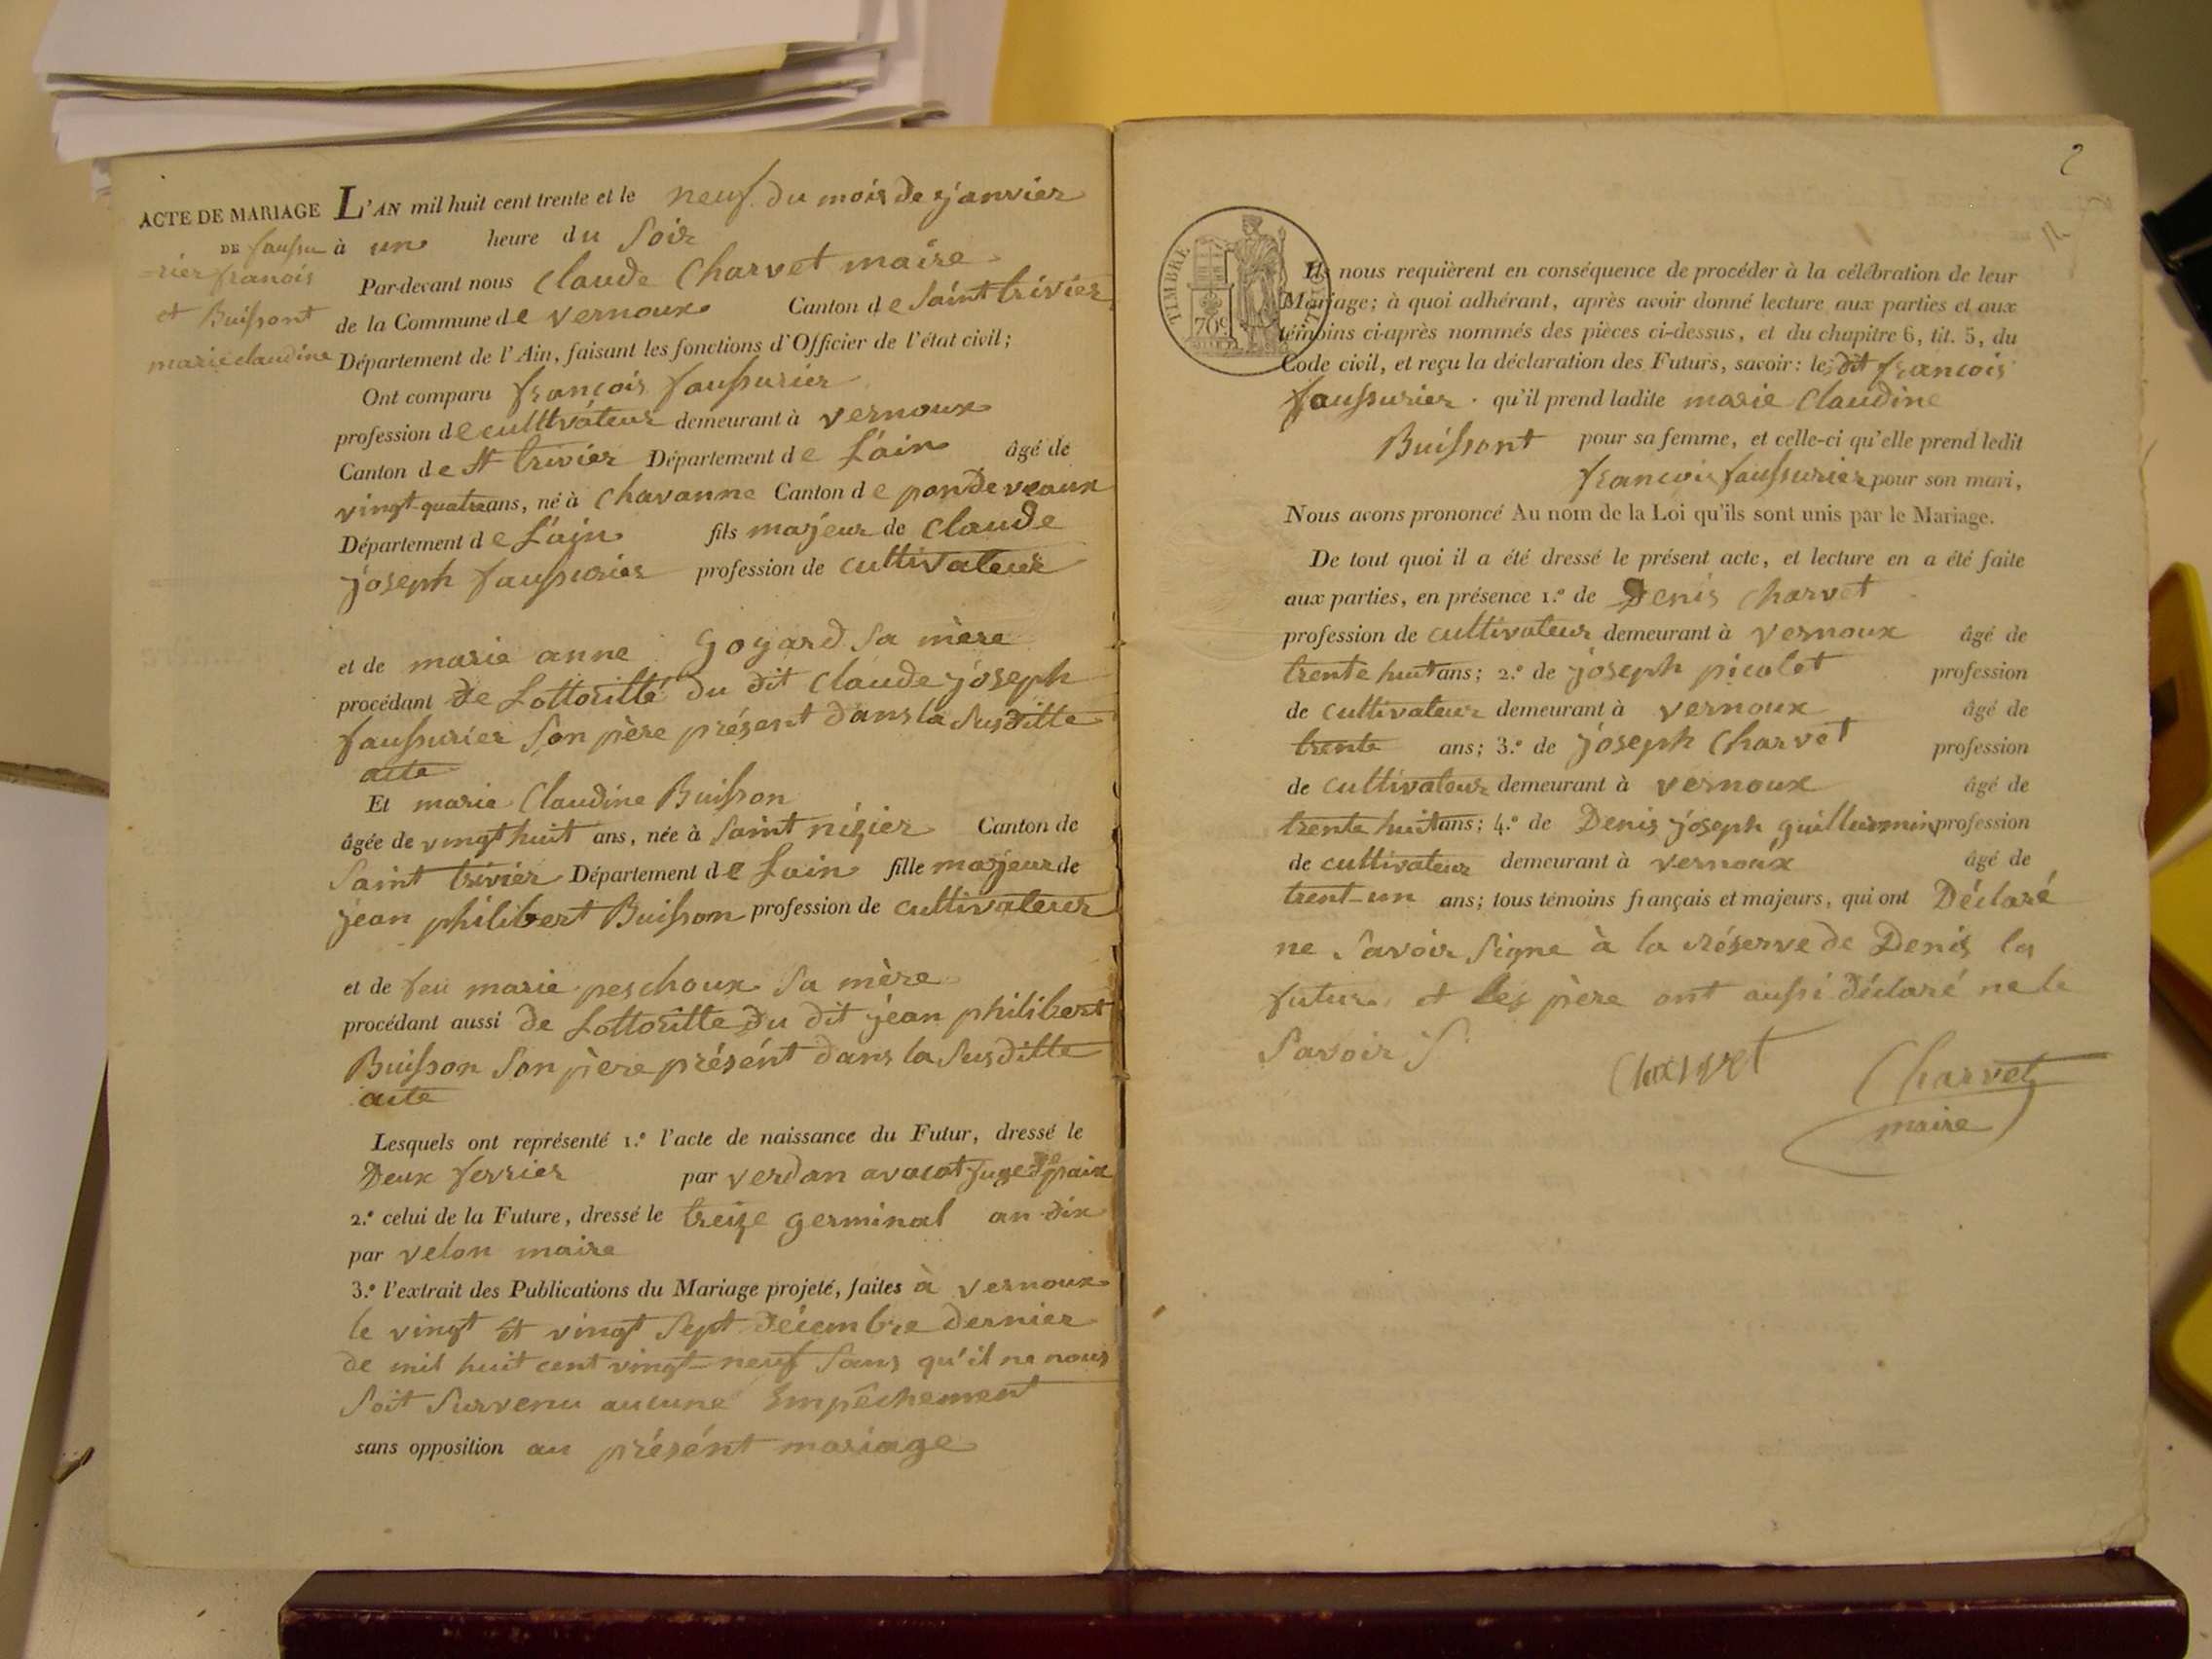 ACTE DE MARIAGE
DE faussu
-rier franois
et Buissont
marie claudine
L'AN mil huit cent trente et le neuf du mois de janvier
à un heure du soir
Par-devant nous Claude Charvet maire
de la Commune de vernoux Canton de Saint trivier
Département de l'Ain, faisant les fonctions d'Officier de l'état civil;
Ont comparu françois faussurier
profession de cultivateur demeurant à vernoux
Canton de St trivier Département de L'ain âgé de
vingt-quatre ans, né à Chavanne Canton de pondeveaux
Département de L'ain fils majeur de Claude
joseph faussurier profession de cultivateur
et de marie anne goyard sa mère
procédant de Lottoritté du dit Claude joseph
faussurier son père présent dans la susditte
acte
Et marie Claudine Buisson
âgée de vingt huit ans, née à Saint nizier Canton de
Saint trivier Département de Lain fille majeur de
jean philibert Buisson profession de cultivateur
et de feu marie peschoux sa mère
procédant aussi de Lottoritte du dit jean philibert
Buisson son père présent dans la susditte
acte
Lesquels ont représenté 1.º l'acte de naissance du Futur, dressé le
Deux fevrier par verdan avocat juge de paix
2.º celui de la Future, dressé le treize germinal an dix
par velon maire
3.º l'extrait des Publications du Mariage projeté, faites à vernoux
le vingt et vingt sept décembre dernier
de mil huit cent vingt-neuf sans qu'il ne nous
soit survenu aucune Empêchement
sans opposition au présent mariage
2
TIMBRE
70c
Ils nous requièrent en conséquence de procéder à la célébration de leur
Mariage; à quoi adhérant, après avoir donné lecture aux parties et aux
témoins ci-après nommés des pièces ci-dessus, et du chapitre 6, tit. 5, du
Code civil, et reçu la déclaration des Futurs, savoir: le dit françois
faussurier qu'il prend ladite marie Claudine
Buissont pour sa femme, et celle-ci qu'elle prend ledit
françois faussurier pour son mari,
Nous avons prononcé Au nom de la Loi qu'ils sont unis par le Mariage.
De tout quoi il a été dressé le présent acte, et lecture en a été faite
aux parties, en présence 1.º de Denis Charvet
profession de cultivateur demeurant à vernoux âgé de
trente huit ans; 2.º de joseph picolet profession
de cultivateur demeurant à vernoux âgé de
trente ans; 3.º de joseph Charvet profession
de cultivateur demeurant à vernoux âgé de
trente huit ans; 4.º de Denis joseph guillermin profession
de cultivateur demeurant à vernoux âgé de
trent-un ans; tous témoins français et majeurs, qui ont Déclaré
ne savoir signe à la réserve de Denis les
futurs et les père ont aussi déclaré ne le
savoir S
Charvet
Charvet
maire